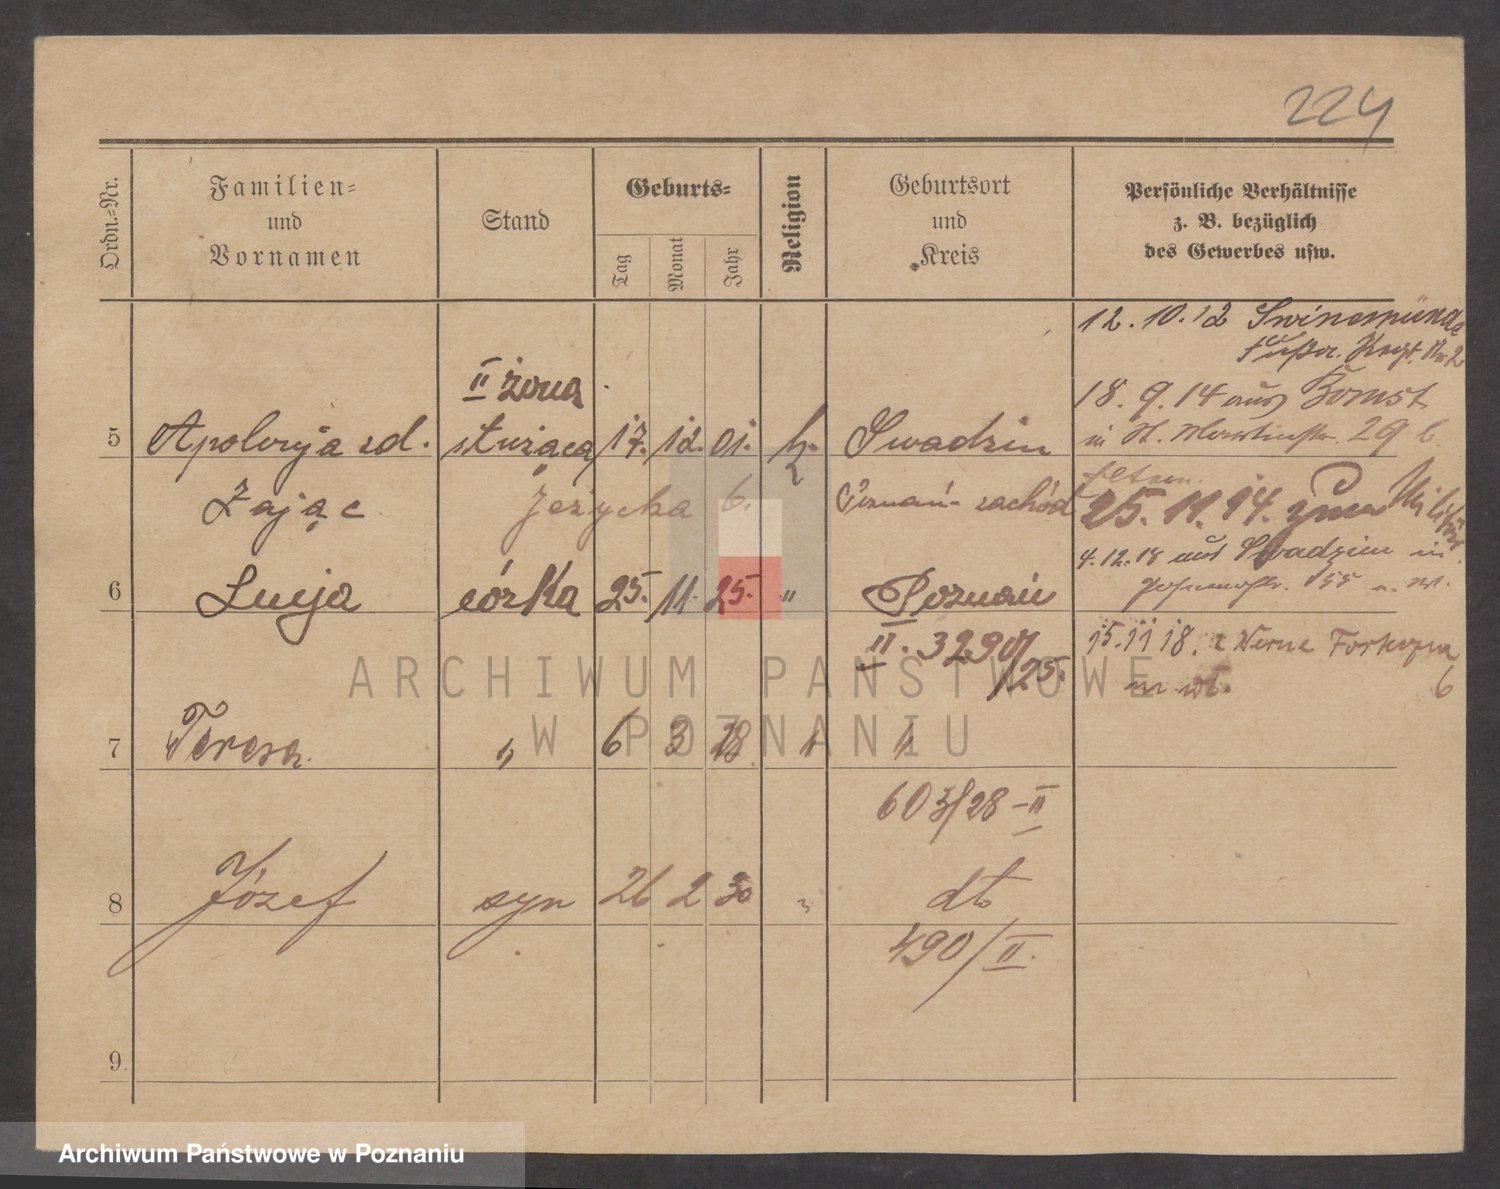 224
Ordn.-Nr.
Familien-
und
Vornamen
Stand
Geburts-
Tag
Monat
Jahr
Religion
Geburtsort
und
Kreis
Persönliche Verhältnisse
z. B. bezüglich
des Gewerbes usw.
12.10.12 Swinemünde
18.9.14 aus Bomst
in St. Martinstr. 29 b
25.11.14. zum Militär
4.12.18 aus Swadzim in
15.11 18.
6
II żona
5 Apolonja zd. służąca 17. 12. 01. k. Swadzim
Zając Jeżycka 6. Poznań-zachód
6 Lucja córka 25. 11. 25. " Poznań
II. 3290/25.
7 Teresa " 6 3 28 " "
603/28-II
8 Józef syn 26 2 30 " dto
490/II.
9.
ARCHIWUM PAŃSTWOWE
W POZNANIU
Archiwum Państwowe w Poznaniu